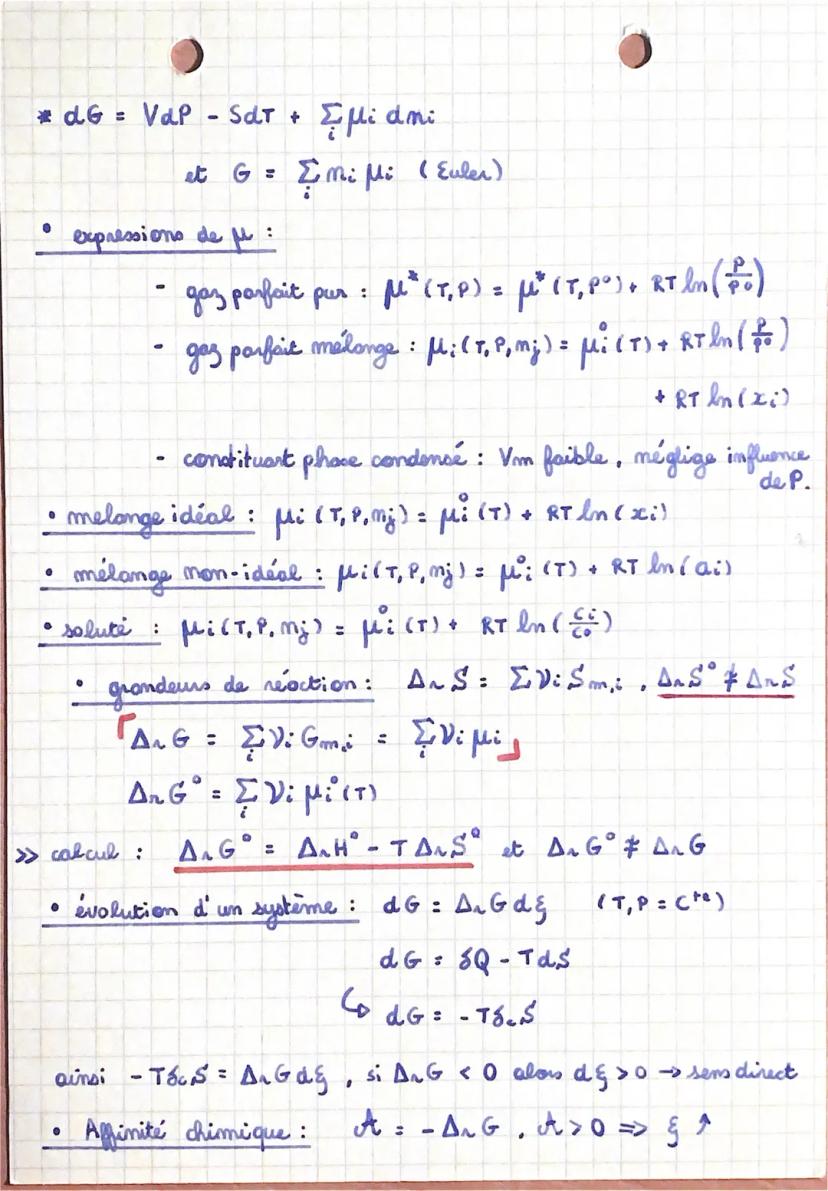 * dG = VdP - SdT + Σᵢ μi dni
et G = Σᵢ ni μi (Euler)
• expressions de μ :
- gaz parfait pur : μ*(T,P) = μ*(T,P°) + RT ln(P/P°)
- gaz parfait mélange : μi(T,P,nj) = μi°(T) + RT ln(P/P°)
+ RT ln(xi)
- constituant phase condensé : Vm faible, néglige influence
de P.
• mélange idéal : μi (T,P,nj) = μi°(T) + RT ln(xi)
• mélange non-idéal : μi(T,P,nj) = μi°(T) + RT ln(ai)
• soluté : μi(T,P,nj) = μi°(T) + RT ln(Ci/C°)
• grandeurs de réaction : ΔrS = Σ νi Sm,i , ΔrS° ≠ ΔrS
ΔrG = Σᵢ νi Gm,i = Σᵢ νi μi
ΔrG° = Σᵢ νi μi°(T)
>> calcul : ΔrG° = ΔrH° - TΔrS° et ΔrG° ≠ ΔrG
• évolution d'un système : dG = ΔrG dξ (T,P = Cᵗᵉ)
dG = δQ - TdS
↳ dG = -TδcS
ainsi -TδcS = ΔrG dξ , si ΔrG < 0 alors dξ > 0 → sens direct
• Affinité chimique : A = -ΔrG , A > 0 => ξ ↗